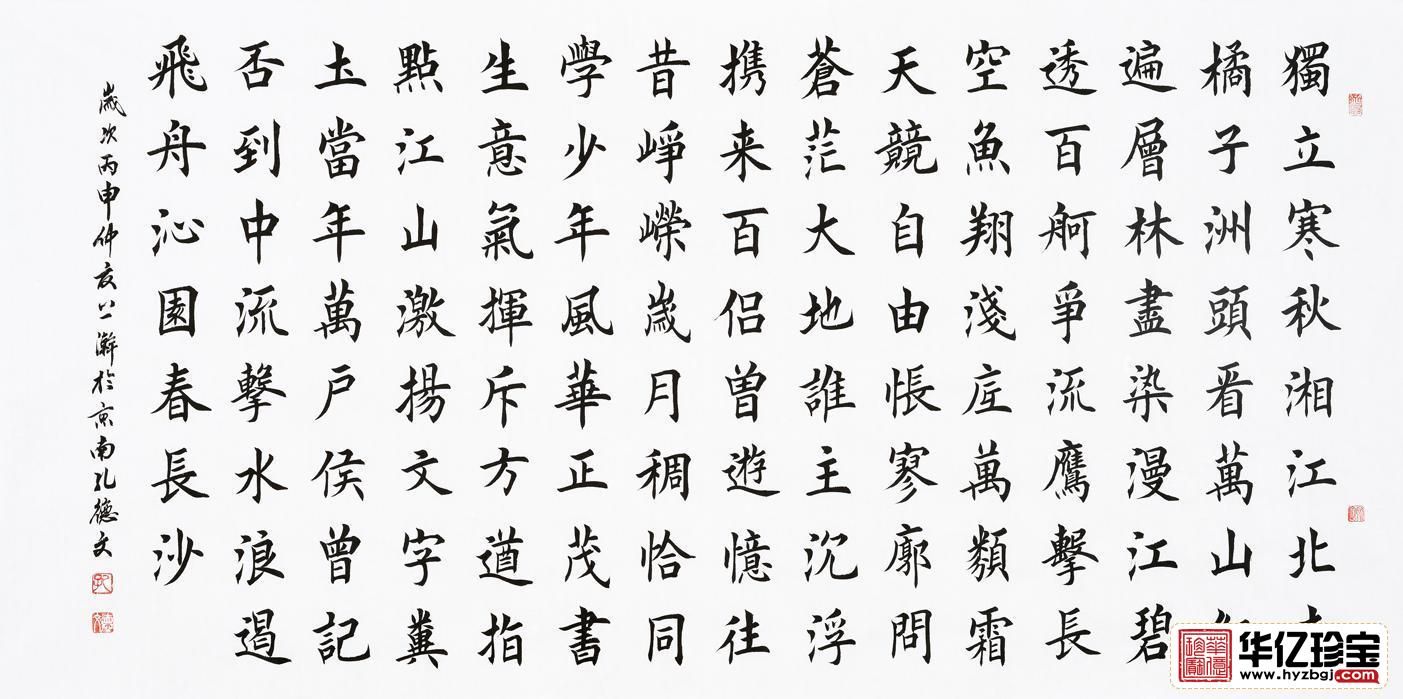 獨立寒秋湘江北去
橘子洲頭看萬山紅
遍層林盡染漫江碧
透百舸爭流鷹擊長
空魚翔淺底萬類霜
天競自由悵寥廓問
蒼茫大地誰主沉浮
携来百侶曾遊憶往
昔崢嶸歲月稠恰同
學少年風華正茂書
生意氣揮斥方遒指
點江山激揚文字糞
土當年萬戶侯曾記
否到中流擊水浪遏
飛舟沁園春長沙
歲次丙申仲夏上澣於京南孔德文
华亿珍宝
www.hyzbgj.com